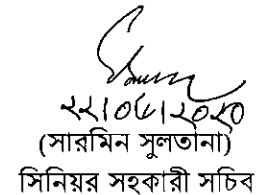 ২২/০৬/২০২০
(সারমিন সুলতানা)
সিনিয়র সহকারী সচিব